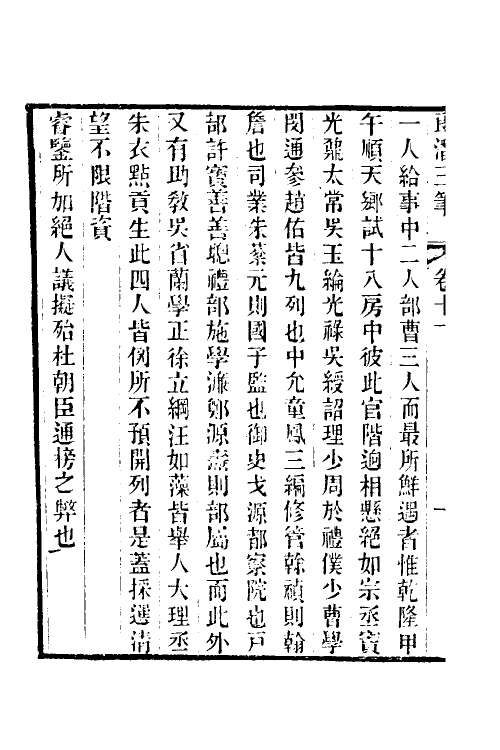 郎潛三筆 卷十一 一
一人給事中二人部曹三人而最所鮮遇者惟乾隆甲
午順天鄉試十八房中彼此官階逈相懸絕如宗丞竇
光鼐太常吳玉綸光祿吳綬詔理少周於禮僕少曹學
閔通參趙佑皆九列也中允童鳳三編修管榦禎則翰
詹也司業朱棻元則國子監也御史戈源都察院也戸
部許寶善善聰禮部施學濂鄭源燾則部屬也而此外
又有助敎吳省蘭學正徐立綱汪如藻皆舉人大理丞
朱衣點貢生此四人皆例所不預開列者是蓋採選淸
望不限階資
睿鑒所加絕人議擬殆杜朝臣通榜之弊也